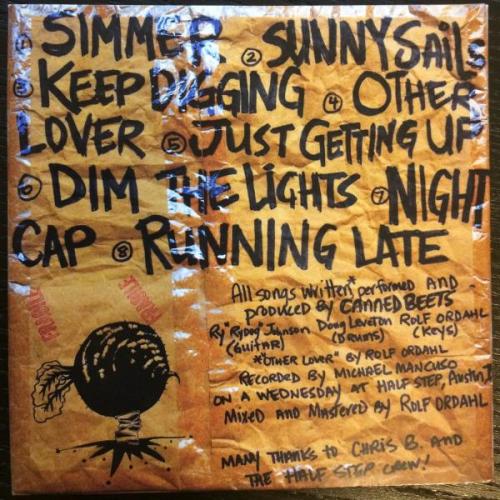 ① SIMMER ② SUNNY SAiLS
③ KEEP DIGGING ④ OTHER
LOVER ⑤ JUST GETTiNG UP
⑥ DIM THE LiGHTS ⑦ NIGHT
CAP ⑧ RUNNING LATE
All songs written* performed AND
produced by CANNED BEETS
Ry "RyDog" Johnson Doug Loveton ROLF ORDAHL
(GUITAR) (DRUMS) (KEYS)
*"OTHER LOVER" BY ROLF ORDAHL
RECORDED BY MICHAEL MANCUSO
ON A WEDNESDAY AT HALF STEP, Austin,
Mixed AND MASTERED By ROLF ORDAHL
MANY THANKS to CHRIS B. AND
THE HALF STEP CREW!
FRAGILE
FRAGILE